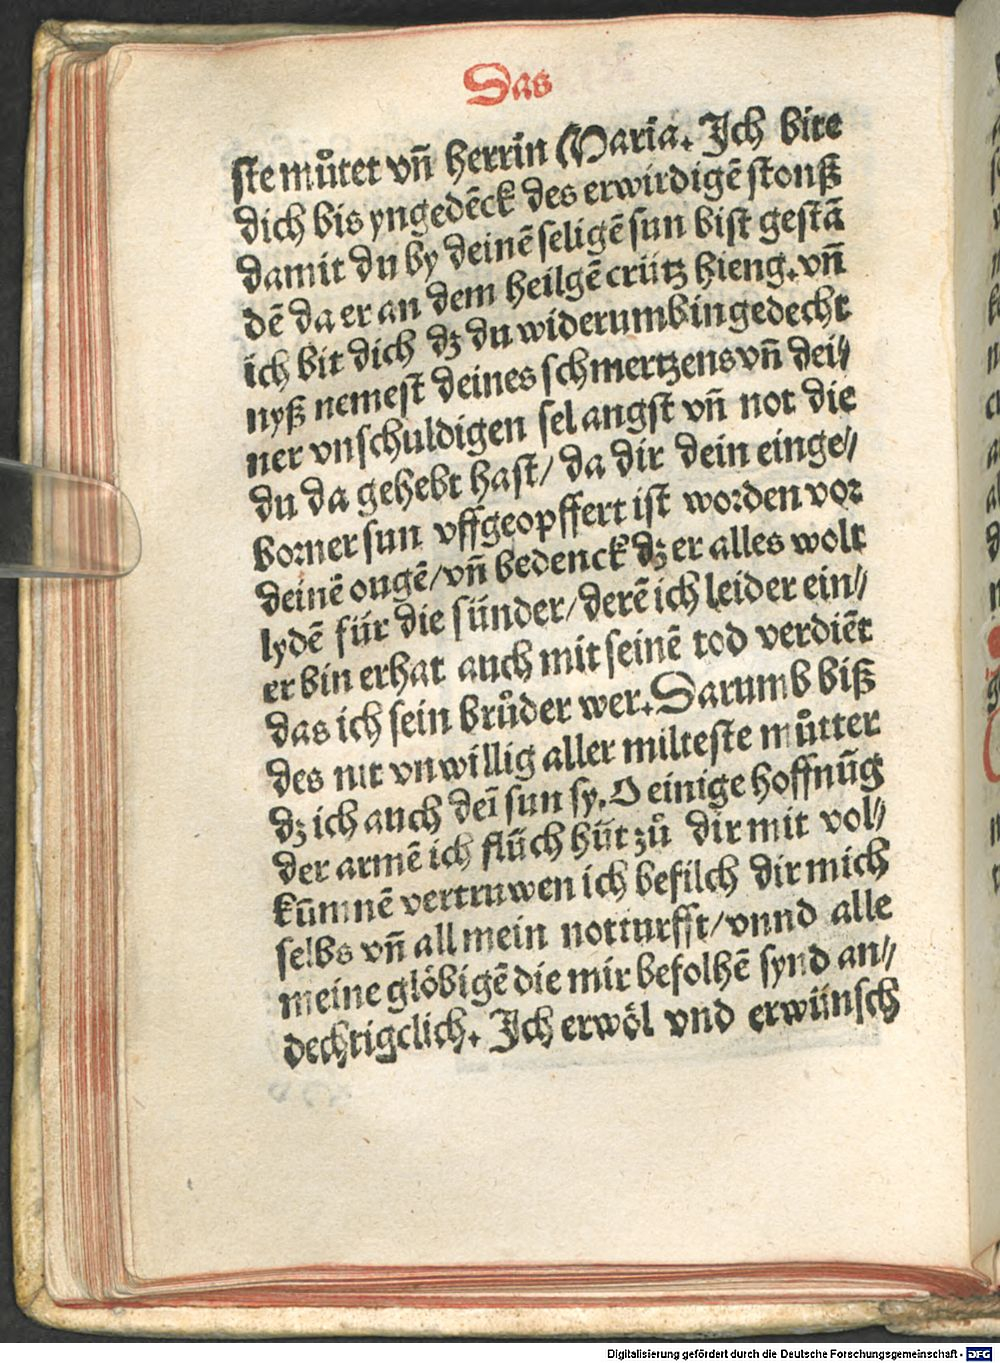 Das
ste muͤtet vn̄ herrin Maria. Ich bite
dich bis yngedēck des erwirdigē stonß
damit du by deinē seligē sun bist gestā
dē da er an dem heilgē crütz hieng. vn̄
ich bit dich dz du widerumb ingedecht
nyß nemest deines schmertzens vn̄ dei⸗
ner vnschuldigen sel angst vn̄ not die
du da gehebt hast/ da dir dein einge⸗
borner sun vffgeopffert ist worden vor
deinē ougē/ vn̄ bedenck dz er alles wolt
lydē für die sünder/ derē ich leider ein⸗
er bin er hat auch mit seinē tod verdiēt
das ich sein bruͦder wer. Darumb biß
des nit vnwillig aller milteste muͦtter
dz ich auch deī sun sy. O einige hoffnūg
der armē ich flüch hüt zuͦ dir mit vol⸗
kūmnē vertruwen ich befilch dir mich
selbs vn̄ all mein notturfft/ vnnd alle
meine glöbigē die mir befolhē synd an⸗
dechtigclich. Ich erwöl vnd erwünsch
Digitalisierung gefördert durch die Deutsche Forschungsgemeinschaft - DFG